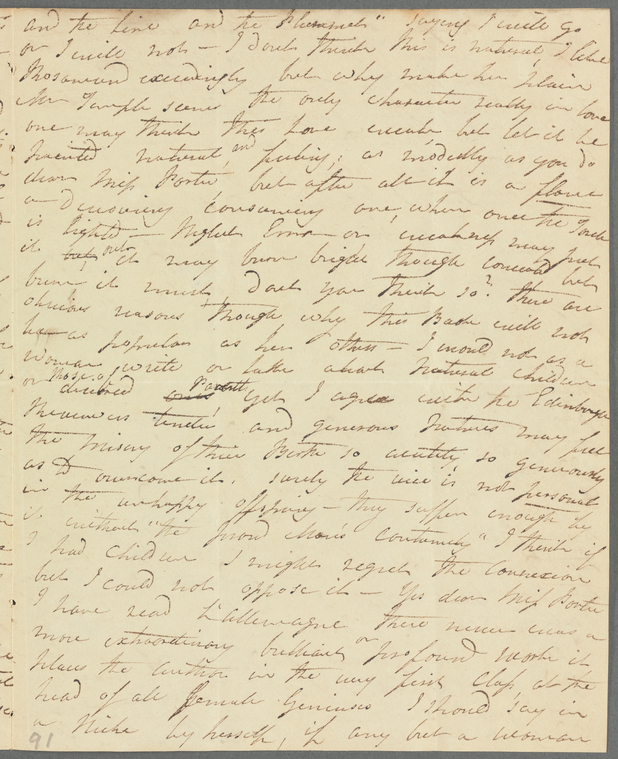 and the Line and the Plummet" saying I will go
or I will not — I don't think this is natural, I like
Rosamond exceedingly but why make her plain
Mr Temple seems the only character really in love
one may think this Love weak, but let it be
painted natural, and feeling; as modestly as you do
dear Miss Porter, but after all it is a flame
a devouring consuming one, when once the Torch
is lighted — Neglect or meanness may put
it out, it may burn bright though concealed but
burn it must, don't you think so? there are
obvious reasons though why this Book will not
be as popular as her others — I would not as a
Woman write or take about Natural children
or those of divorced Parents, yet I agree with the Edinburgh
Reviewers tender and generous Natures may feel
the misery of their Birth so acutely so generously
as to overcome it. surely the vice is not personal
in the unhappy offspring — they suffer enough be
it without "the proud Man's contumely" I think if
I had children I might regret the Connexion
but I could not oppose it — Yes dear Miss Porter
I have read L'allemagne there never was a
more extraordinary brilliant or profound work it
places the author in the very first Class at the
head of all female Geniuses I should say in
a Niche by herself, if any but a woman
91